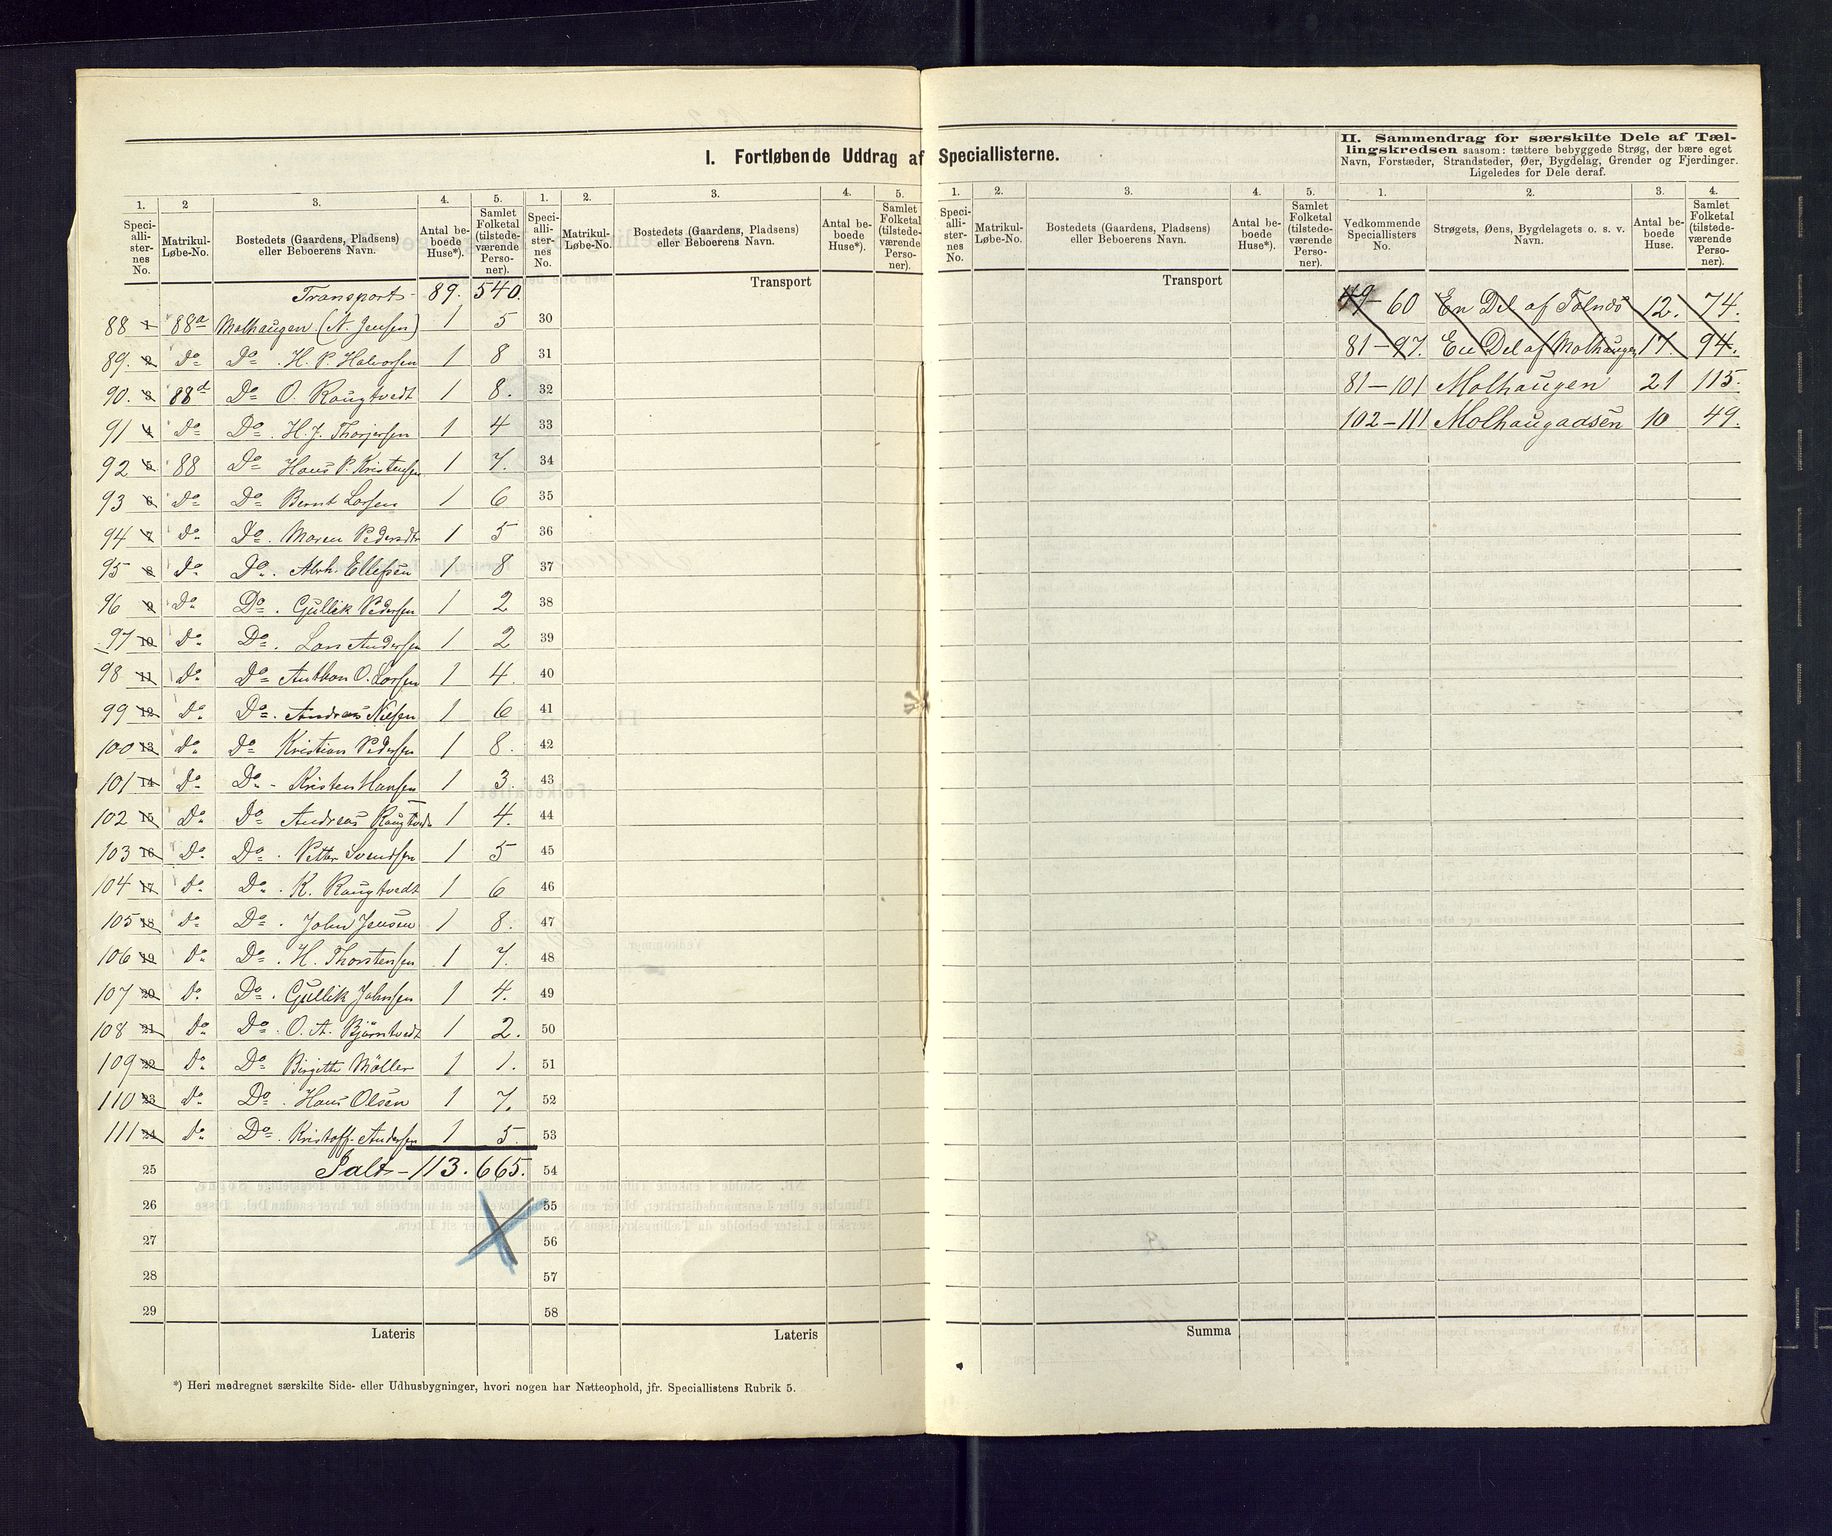 I. Fortløbende Uddrag af Speciallisterne.
II. Sammendrag for særskilte Dele af Tællingskredsen saasom: tættere bebyggede Strøg, der bære eget
Navn, Forstæder, Strandsteder, Øer, Bygdelag, Grender og Fjerdinger.
Ligeledes for Dele deraf.
1. 2 3. 4. 5. 1. 2. 3. 4. 5. 1. 2. 3. 4. 5. 1. 2. 3. 4.
Speciallisternes No. Matrikul-Løbe-No. Bostedets (Gaardens, Pladsens) eller Beboerens Navn. Antal beboede Huse*). Samlet Folketal (tilstedeværende Personer).
Speciallisternes No. Matrikul-Løbe-No. Bostedets (Gaardens, Pladsens) eller Beboerens Navn. Antal beboede Huse*). Samlet Folketal (tilstedeværende Personer).
Speciallisternes No. Matrikul-Løbe-No. Bostedets (Gaardens, Pladsens) eller Beboerens Navn. Antal beboede Huse*). Samlet Folketal (tilstedeværende Personer).
Vedkommende Speciallisters No. Strøgets, Øens, Bygdelagets o. s. v. Navn. Antal beboede Huse. Samlet Folketal (tilstedeværende Personer).
Transport - 89. 540.
88 1 88a Molhaugen (N. Jensen) 1 5
89. 2 Do Do . H. P. Halvorsen 1 8
90. 3 88d Do O. Raugtvedt 1 8.
91 4 Do Do . H. J. Thorjersen 1 4
92 5 88 Do Hans P. Kristensen 1 7.
93 6 Do Do Bernt Larsen 1 6
94 7 Do Do . Maren Pedersdtr 1 5
95 8 Do Do . Abrh. Ellefsen 1 8
96 9 Do Do . Gullik Pedersen 1 2
97 10 Do Do . Lars Andersen 1 2
98 11 Do Do Anthon O. Larsen 1 4.
99 12 Do Do . Andreas Nielsen 1 6
100 13 Do Do Kristian Pedersen 1 8.
101 14 Do Do - Kristen Hansen 1 3
102 15 Do Do Andreas Raugtvedt 1 4.
103 16 Do Do . Petter Svendsen 1 5
104 17 Do Do . K. Raugtvedt 1 6
105 18 Do Do . John Jensen 1 8.
106 19 Do Do . H. Thorstensen 1 7.
107 20 Do Do . Gullik Johnsen 1 4.
108 21 Do Do . O. A. Bjørntvedt 1 2.
109 22 Do Do Birgitte Möller 1 1.
110 23 Do Do . Hans Olsen 1 7.
111 24 Do Do . Kristoff. Andersen 1 5.
25 Ialt - 113. 665.
26
27
28
29
Lateris
Transport
30
31
32
33
34
35
36
37
38
39
40
41
42
43
44
45
46
47
48
49
50
51
52
53
54
55
56
57
58
Lateris
Transport
Summa
49-60 En Del af Tolnæs 12. 74.
81-97. En Del af Molhaugen 17. 94.
81-101 Molhaugen 21 115.
102-111 Molhaugaasen 10 49.
*) Heri medregnet særskilte Side- eller Udhusbygninger, hvori nogen har Natteophold, jfr. Speciallistens Rubrik 5.